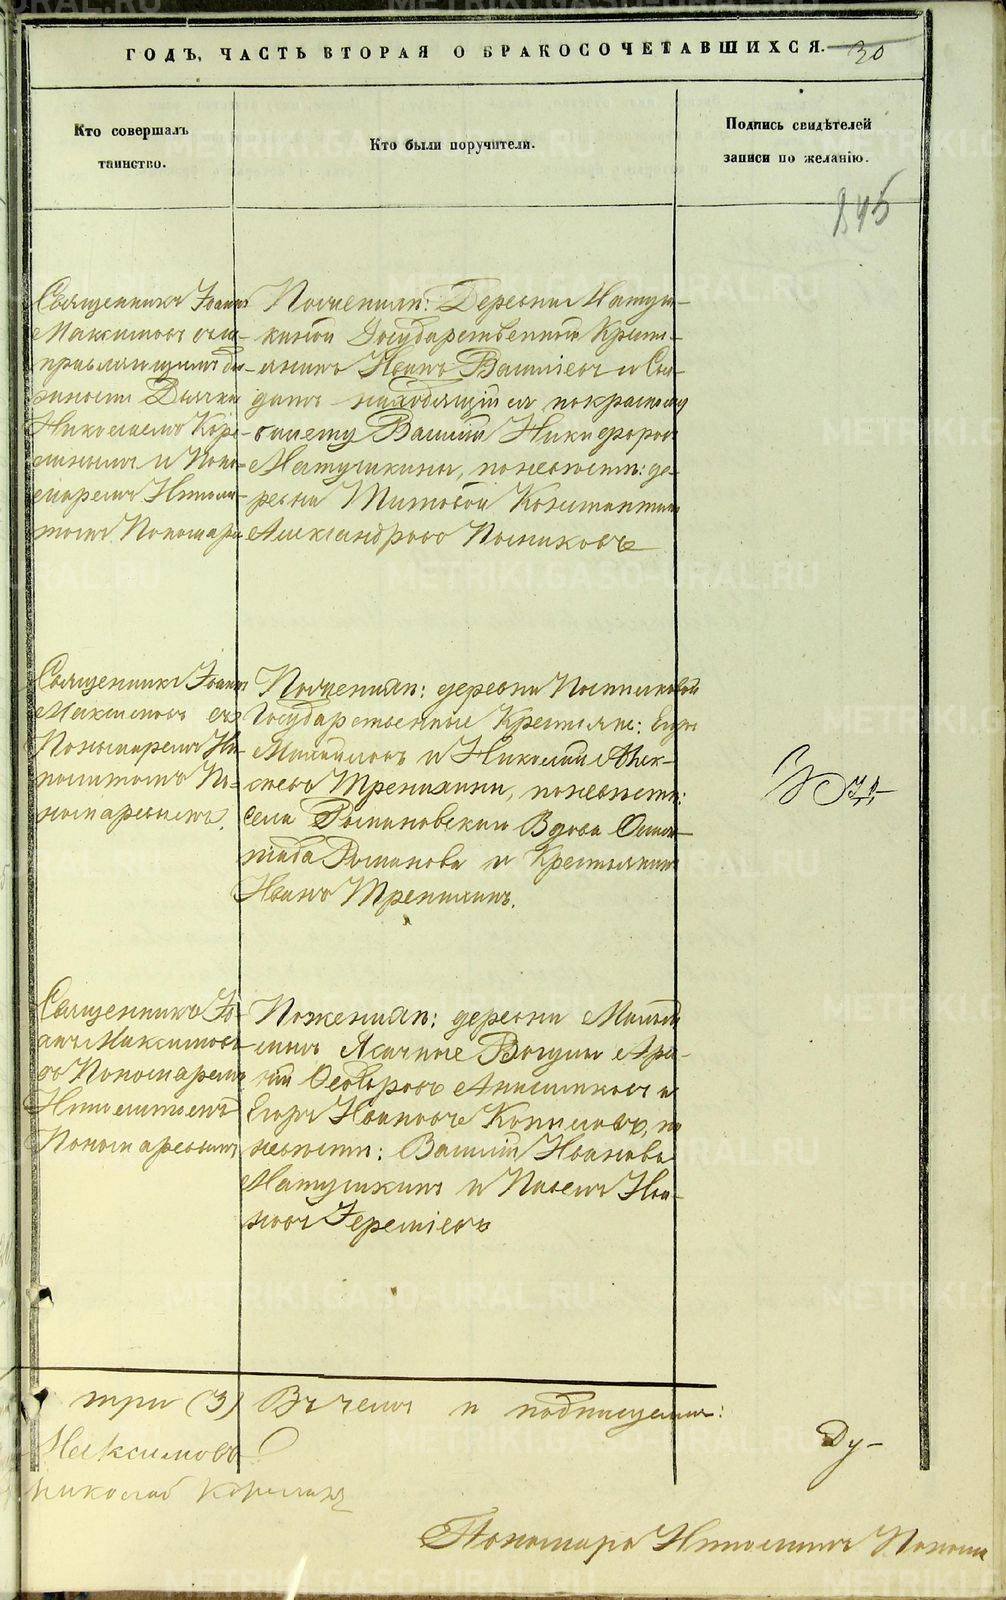 ГОДЪ, ЧАСТЬ ВТОРАЯ О БРАКОСОЧЕТАВШИХСЯ.
30
Кто совершалъ
таинство.
Кто были поручители.
Подпись свидѣтелей
записи по желанію.
845
Священникъ Іоаннъ
Максимовъ съ
должности Дьячка
Николаемъ Коре-
и Поно-
маремъ Иполи-
томъ Пономаре
По женихѣ: Деревни Матуш-
киной Государственный Крест-
янинъ Иванъ и Сол-
датъ находящійся по красному
билету Василій Никифоровъ
Матушкины, по невѣстѣ: де-
ревни Титовой Константинъ
Александровъ Постниковъ
Священникъ Іоаннъ
Максимовъ съ
Пономаремъ Ип-
политомъ По-
номаревымъ.
По женихѣ: деревни Постниковой
Государственные Крестьяне: Егоръ
Михайловъ и Николай Алек-
сѣевъ Трепихины, по невѣстѣ:
села Романовскаго Вдова
Романова и Крестьянинъ
Иванъ Трепихинъ.
Священникъ Іо-
аннъ Максимовъ
съ Пономаремъ
Ипполитомъ
Пономаревымъ
По женихѣ: деревни
Ясачные Вогулы
Ѳедоровъ и
Егоръ Ивановъ Копыловъ, по
невѣстѣ: Василій Ивановъ
Матушкинъ и Павелъ Ива-
новъ Іереміевъ
три (3) Въ чемъ и подписуемся:
Максимовъ
Ду-
Николай Корелинъ
Пономарь Ипполитъ Понома
METRIKI.GASO-URAL.RU